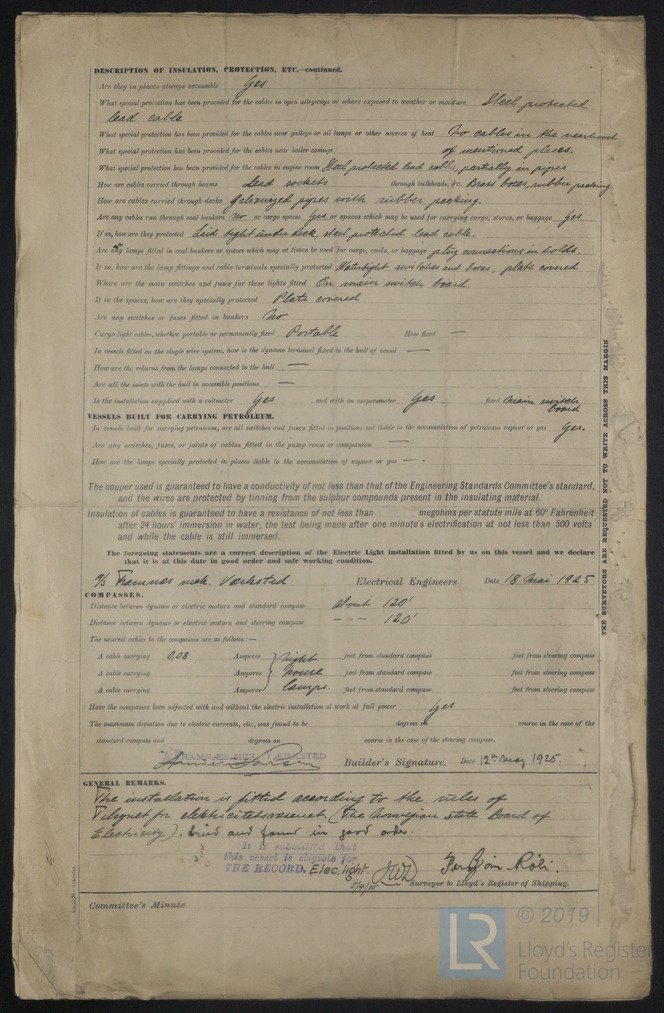 DESCRIPTION OF INSULATION, PROTECTION, ETC.—continued.
Are they in places always accessible Yes
What special protection has been provided for the cables in open alleyways or where exposed to weather or moisture Steel protected
lead cable
What special protection has been provided for the cables near galleys or oil lamps or other sources of heat No cables in the
What special protection has been provided for the cables near boiler casings of mentioned places.
What special protection has been provided for the cables in engine room Steel protected lead cable, partially in pipes
How are cables carried through beams Lead sockets through bulkheads, &c. Brass boxes, rubber packing.
How are cables carried through decks Galvanized pipes with rubber packing.
Are any cables run through coal bunkers No or cargo spaces Yes or spaces which may be used for carrying cargo, stores, or baggage Yes
If so, how are they protected Laid tight under deck, steel protected lead cable.
Are any lamps fitted in coal bunkers or spaces which may at times be used for cargo, coals, or baggage plug connections in holds.
If so, how are the lamp fittings and cable terminals specially protected Watertight switches and boxes, plate covered
Where are the main switches and fuses for these lights fitted On main switch board.
If in the spaces, how are they specially protected Plate covered
Are any switches or fuses fitted in bunkers No
Cargo light cables, whether portable or permanently fixed Portable How fixed —
In vessels fitted on the single wire system, how is the dynamo terminal fixed to the hull of vessel —
How are the returns from the lamps connected to the hull —
Are all the joints with the hull in accessible positions —
Is the installation supplied with a voltmeter Yes , and with an amperemeter Yes , fixed main switch
board
VESSELS BUILT FOR CARRYING PETROLEUM.
In vessels built for carrying petroleum, are all switches and fuses fitted in positions not liable to the accumulation of petroleum vapour or gas Yes.
Are any switches, fuses, or joints of cables fitted in the pump room or companion —
How are the lamps specially protected in places liable to the accumulation of vapour or gas — -
The copper used is guaranteed to have a conductivity of not less than that of the Engineering Standards Committee's standard,
and the wires are protected by tinning from the sulphur compounds present in the insulating material.
Insulation of cables is guaranteed to have a resistance of not less than megohms per statute mile at 60° Fahrenheit
after 24 hours' immersion in water, the test being made after one minute's electrification at not less than 500 volts
and while the cable is still immersed.
The foregoing statements are a correct description of the Electric Light installation fitted by us on this vessel and we declare
that it is at this date in good order and safe working condition.
A/S Framnæs mek. Værksted Electrical Engineers Date 18 Mai 1925
COMPASSES.
Distance between dynamo or electric motors and standard compass About 120'
Distance between dynamo or electric motors and steering compass — " — 120'
The nearest cables to the compasses are as follows:—
A cable carrying 0,08 Amperes night feet from standard compass feet from steering compass
A cable carrying Amperes house feet from standard compass feet from steering compass
A cable carrying Amperes lamps. feet from standard compass feet from steering compass
Have the compasses been adjusted with and without the electric installation at work at full power Yes
The maximum deviation due to electric currents, etc., was found to be degrees on course in the case of the
standard compass and degrees on course in the case of the steering compass.
FRAMNÆS MEK. VÆRKSTED
Builder's Signature. Date 12th May 1925.
GENERAL REMARKS.
The installation is fitted according to the rules of
Tilsynet for elektricitetsvæsenet (The Norwegian State Board of
Electricity), tried and found in good order.
It is submitted that
this vessel is eligible for
THE RECORD. Elec. light.
Surveyor to Lloyd's Register of Shipping.
Committee's Minute
THE SURVEYORS ARE REQUESTED NOT TO WRITE ACROSS THIS MARGIN
LR
© 2019
Lloyd's Register
Foundation